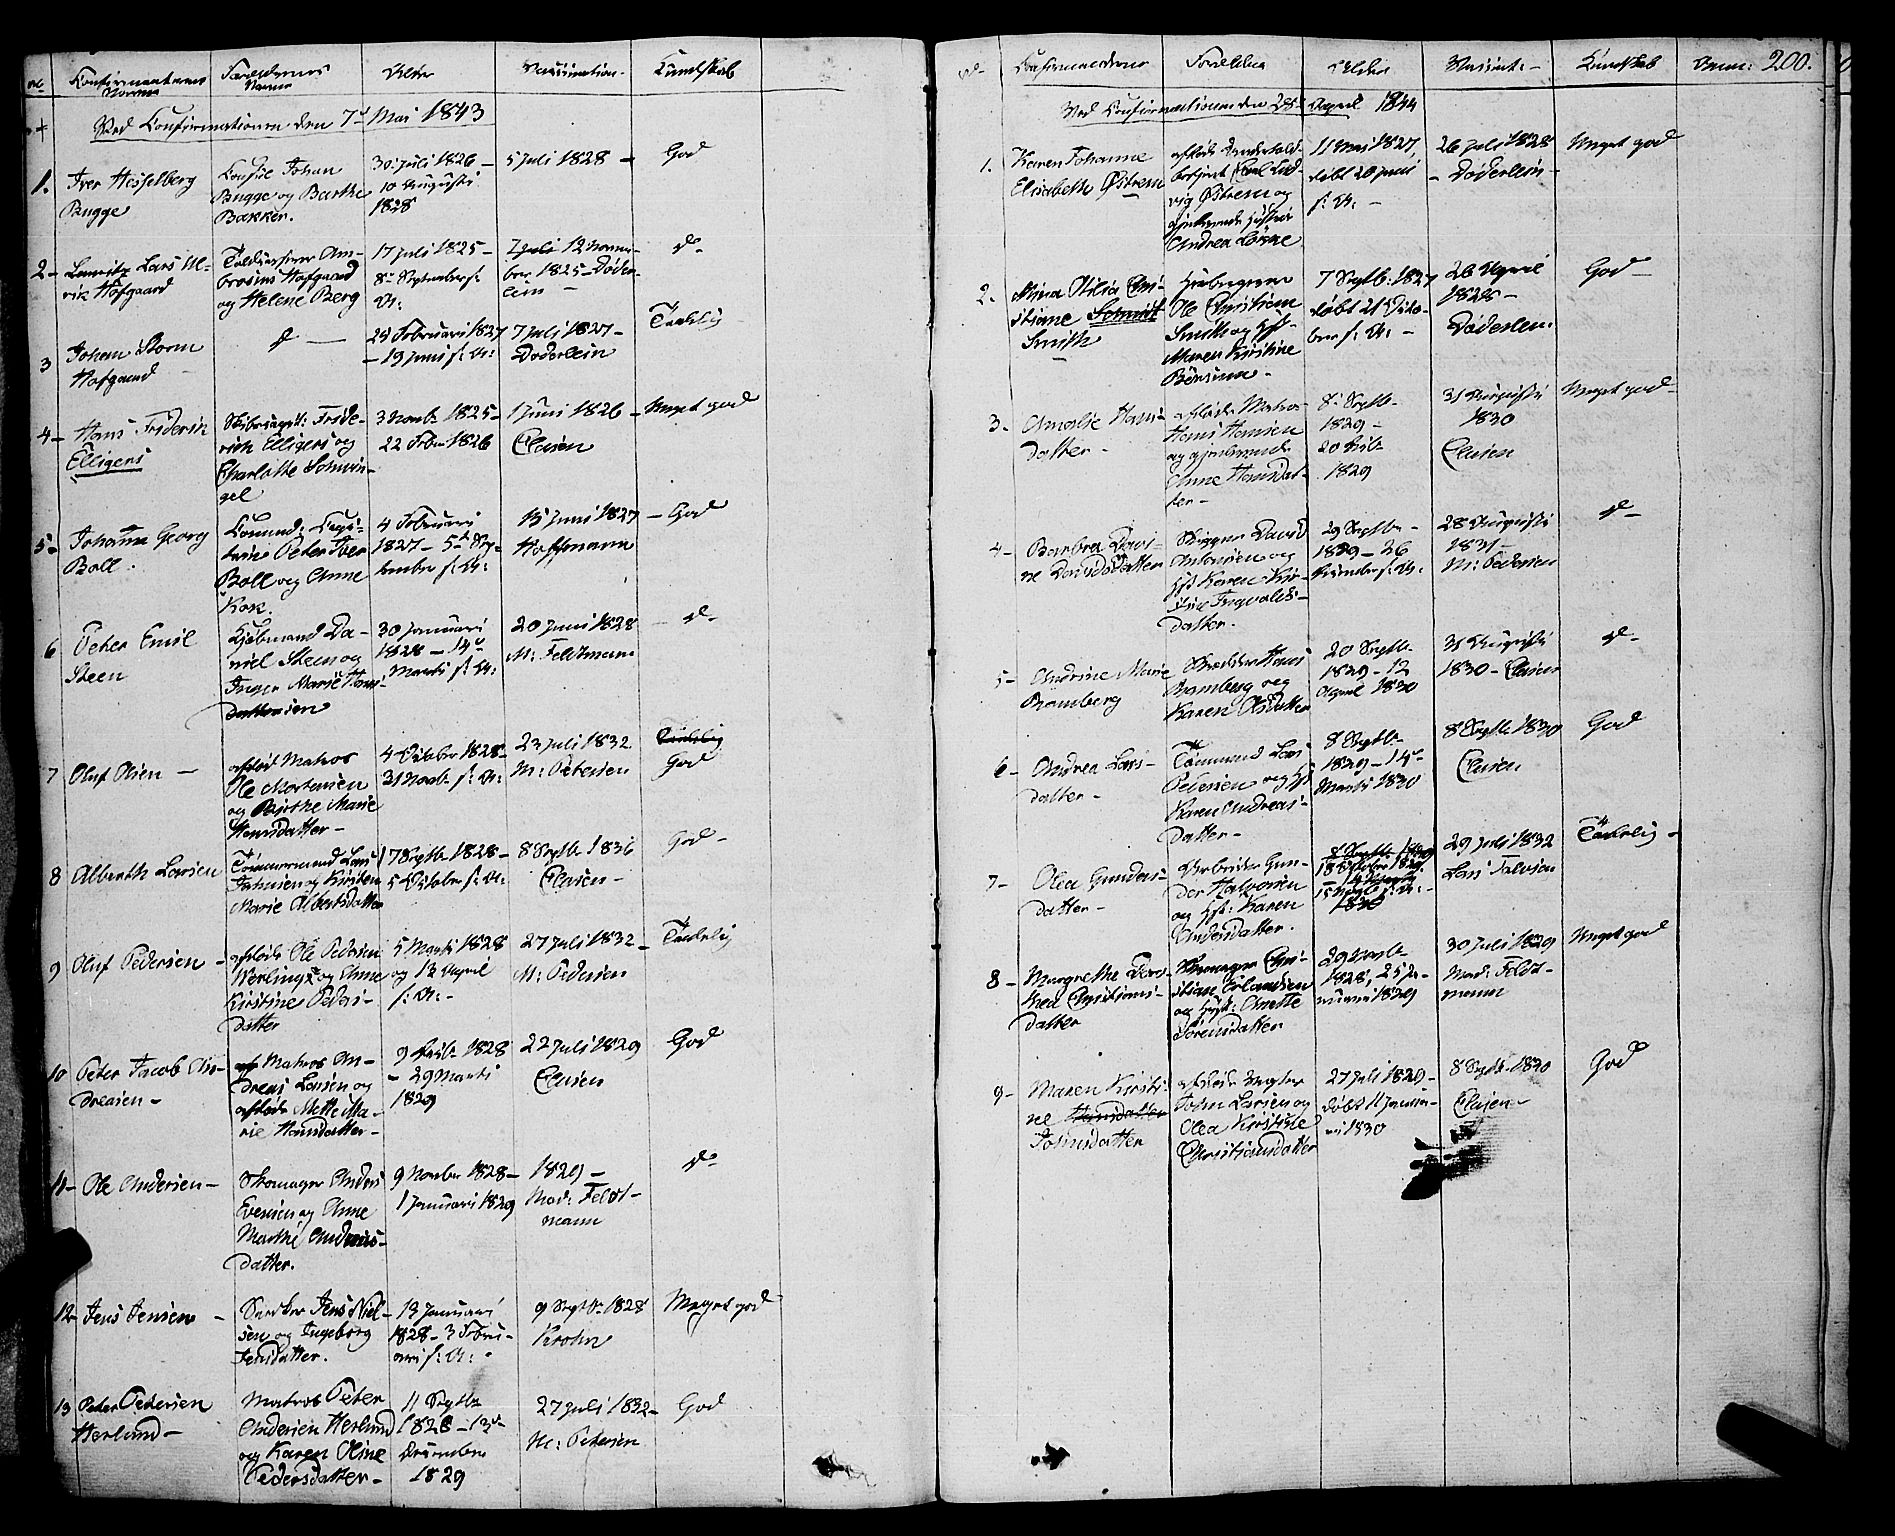 Confirmanternes Navne
Forældrenes Navne
Alder
Vaccination
Kundskab
Ved Confirmationen den 7d Mai 1843
1. Iver Hesselberg
Bugge
Consul Johan
Bugge og Barthe
Bakker.
30 Juli 1826 –
10 Augusti
1828
5 Juli 1828 –
God
2 – Lauritz Lars Ul-
rik Hofgaard
Toldinsperer Am-
brosius Hofgaard
og Helene Berg
17 Juli 1825 –
8de September s: A:
7 Juli 12 Novem-
ber 1825 – Døder-
lein –
do
3 Johan Storm
Hofgaard
do —
7 Juli 1827 –
Doderlein
Taalelig
– 19 Juni s: A:
4 – Hans Friderich
Elligers
Elligers og
Charlotte Schwin-
gel
3 Novb. 1825 –
22 Febr 1826
1 Juni 1826 –
Clasen
Meget god
5 – Johanna Georg
Boll.
Peter Iver
Boll og Anne
Kok.
4 Februari
1827 – 5te Sep-
tember s: A:
15 Juni 1827
Hoffmann
– God
6 Peter Emil
Steen
Kjøbmand Da-
niel Steen og
Inger Marie Hans-
datter
30 Januari
1828 – 14d
Marti s: A:
20 Juni 1828
M: Feldtmann
– do
7 Oluf Olsen –
afdød Matros
Ole Mortensen
og Birthe Marie
Hansdatter –
4 October 1828
31 Novb. s: A:
23 Juli 1832
M: Petersen
Taalelig
God
8 Albarth Larsen
Tømmermand Lars
Johnsen og Kirsten
Marie Albertsdatter
17 Septb. 1828 –
5 October s: A:
8 Septb. 1836
Clasen –
God –
9 Oluf Pedersen –
afdøde Ole Pedersen
og Anne
Kirstine Peders-
datter
5 Marti 1828
og 13 April
s: A: –
27 Juli 1832 –
M: Pedersen
Taalelig
10 Peter Jacob An-
dreasen –
Matros An-
dreas Larsen og
afdøde Mette Ma-
rie Hansdatter –
9 1828
– 29 Marti
1829
22 Juli 1829
Clasen
God
11 – Ole Andersen –
Skomager Anders
Evensen og Anne
Marthe Anders-
datter.
9 Novembr 1828 –
1 Januari 1829
1829 –
Mad: Feldt-
mann
do
12 – Jens Jensen –
Snedker Jens Niel-
sen og Ingeborg
Jensdatter.
13 Januari
1828 – 3 Febru-
ari s: A:
9 Septb. 1828
Krohn
Meget god
13 Peter Pedersen
Herlund –
Matros Peter
Andersen Herlund
og Karen Oline
Pedersdatter –
11 Septbr
1828 – 13d
Decembr
1829
27 Juli 1832 –
M: Petersen
God
Confirmanderne
Forældre
Alder
Vaccint: –
Kundskab
Anm: 200.
Ved Confirmationen den 28d April 1844
1. Karen Johanne
Elisabeth Østrem
Carl Lud-
vig Østrem og
gjenlevende Hustru
Andrea Lorine
11 Mai 1827,
døbt 20 Juni
s: A: –
26 Juli 1828
– Døderlein –
Meget god
2. Mina Otilia Chri-
stiane Schmidt
Smith
Ole Christian
Smith og Hst.
Maren Kirstine
7 Septb: 1827
døbt 21 Octo-
ber s: A: –
26 April
1828 –
Døderlein
God –
3 – Amalie Hans-
datter –
afdøde Matros
Hans Hansen
og gjenlevende
Anne Hansdat-
ter –
8de Septb.
1829 –
20
1829
31 Augusti
1830
Clasen
Meget god –
4 – Barbra Davi-
ne Davidsdatter
Skipper David
Antonsen og
Hst Karen Kir-
stine Ingvalds-
datter.
29 Septbr –
1829 – 26
Decembr s: A:
28 Augusti
1831 –
M: Pedersen
do –
5 – Andrine Marie
Bomberg
Hans
Bomberg og
Karen Olsdatter
20 Septb.
1829 – 12
April 1830
31 Augusti
1830 – Clasen
do –
6 – Andrea Lars-
datter –
Tømmmd Lars
Petersen og Hst
Karen Andreas-
datter –
8 Septb.
1829 – 14d
Marti 1830
8 Septb. 1830
Clasen
God
7 – Olea Gunders-
datter –
Arbeider Gun-
der Halvorsen
og Hst: Karen
Andersdatter.
1830
29 Juli 1832
Lars Talvsen
Taalelig –
8 – Margrethe Doro-
thea Christians-
datter
Skomager Chri-
stian Erlandsen
og Hust: Anette
Sørensdatter
1828, 25 Ja-
nuari 1829
30 Juli 1829
Mad: Feldt-
mann
Meget god
9 – Maren Kirsti-
ne Hansdatter
Johnsdatter
afdøde
John Larsen og
Olea Kirstine
Christiansdatter
27 Juli 1829 –
døbt 11 Janua-
ri 1830
8 Septb. 1830
Clasen
God